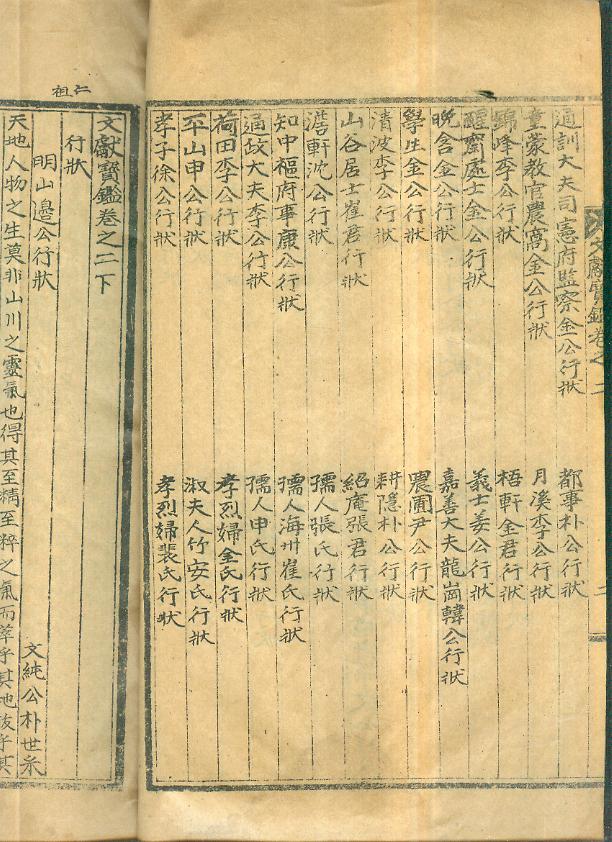 文獻寶鑑卷之二
通訓大夫司憲府監察金公行狀 都事朴公行狀
童蒙教官農窩金公行狀 月溪李公行狀
錦峰李公行狀 梧軒金君行狀
處士金公行狀 義士姜公行狀
晩含金公行狀 嘉善大夫龍崗韓公行狀
學生金公行狀 農圃尹公行狀
清波李公行狀 耕隱朴公行狀
山谷居士崔君行狀 紹庵張君行狀
澹軒沈公行狀 孺人張氏行狀
知中樞府事康公行狀 孺人海州崔氏行狀
通政大夫李公行狀 孺人申氏行狀
荷田李公行狀 孝烈婦金氏行狀
平山申公行狀 淑夫人竹安氏行狀
孝子徐公行狀 孝烈婦裴氏行狀
仁祖
文獻寶鑑卷之二下
行狀
明山邊公行狀 文純公朴世采
天地人物之生莫非山川之靈氣也得其至精至粹之氣而萃乎其地拔乎其